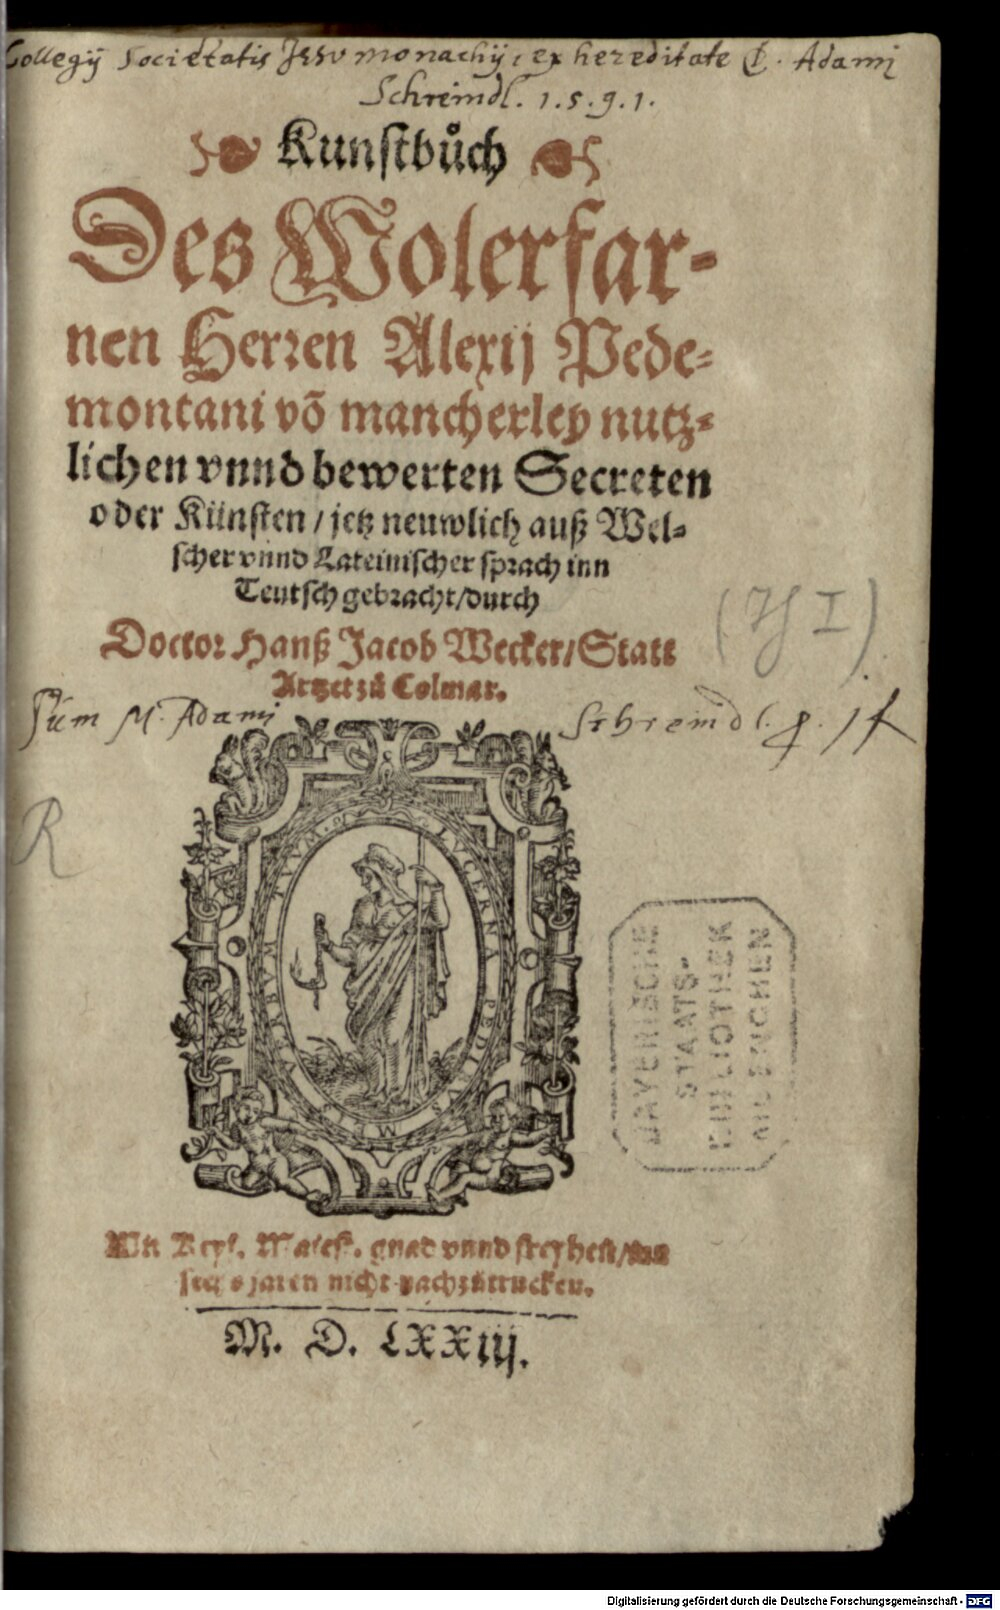 Collegij Societatis Jesu monachij, ex hereditate D. Adami
Schreindl. 1.5.9.1.
Kunstbuͦch
Des Wolerfar-
nen Herren Alexij Pede-
montani võ mancherley nutz-
lichen vnnd bewerten Secreten
oder Künsten / jetz neuwlich auß Wel-
scher vnnd Lateinischer sprach inn
Teutsch gebracht / durch
Doctor Hanß Jacob Wecker / Statt
Artzet zuͦ Colmar.
Sum M. Adami Schreindl.
R
LVCERNA PEDIBVS MEIS VERBVM TVVM.
BAYERISCHE
STAATS-
BIBLIOTHEK
MUENCHEN
Mit Keys. Maiest. gnad vnnd freyheit / inn
jaren nicht nachzuͦtrucken.
M. D. LXXIIJ.
Digitalisierung gefördert durch die Deutsche Forschungsgemeinschaft - DFG